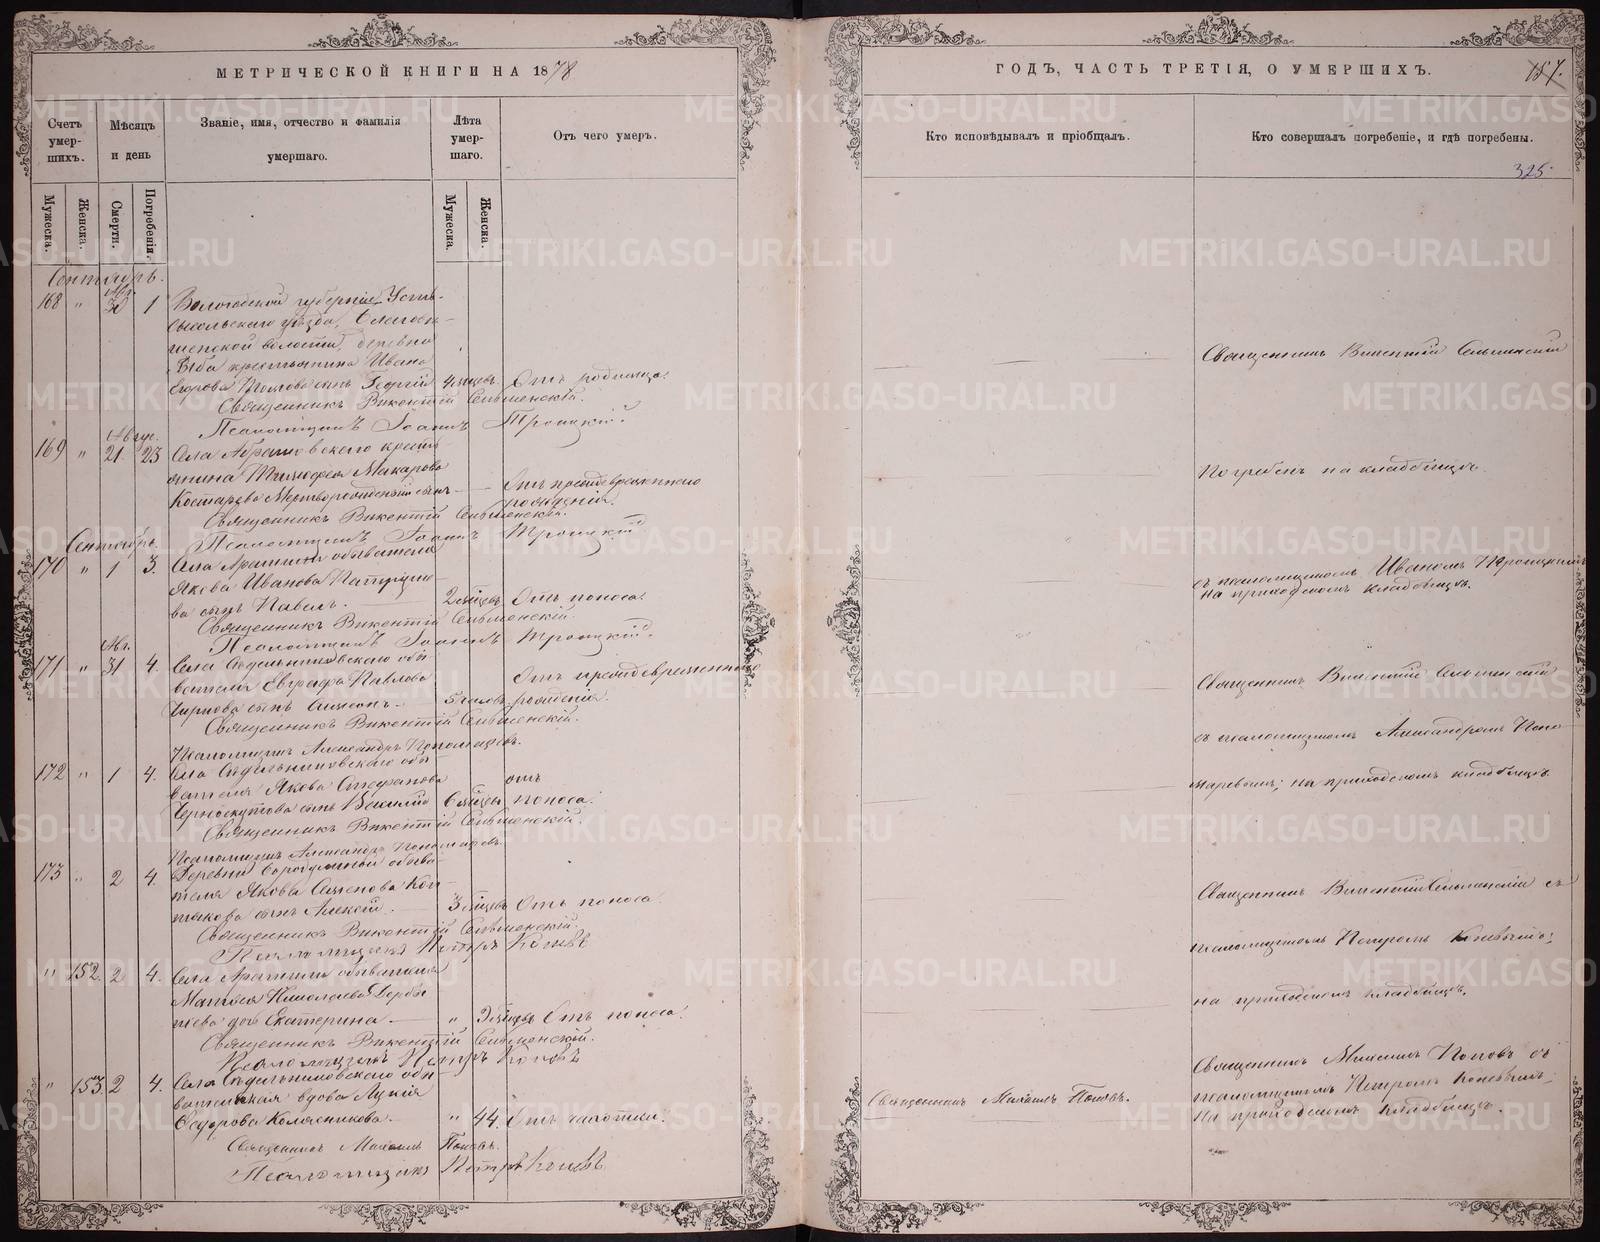 МЕТРИЧЕСКОЙ КНИГИ НА 1878
Счетъ умер-шихъ.
Мѣсяцъ и день
Званіе, имя, отчество и фамилія умершаго.
Лѣта умер-шаго.
Отъ чего умеръ.
Мужеска.
Женска.
Смерти.
Погребенія.
Мужеска.
Женска.
Сентябрь.
Авг.
168 " 30 1 Вологодской губерніи Усть-
сысольскаго уѣзда,
волости, деревни
крестьянина Ивана
Егорова сынъ Георгій 4 мѣсяцев. Отъ родимца.
Священникъ Викентій Сельменскій.
Псаломщикъ Іоаннъ Троицкій.
Авгус.
169 " 21 23 Села Абрамовскаго крестья-
нина Тимофея Макарова
Костарева Мертворожденный сынъ — Отъ преждевременнаго
рожденія.
Священникъ Викентій Сельменскій.
Сентябрь.
Псаломщикъ Іоаннъ Троицкій
170 " 1 3. Села Арамили обывателя
Якова Иванова
ва сынъ Павелъ. 2 мѣсяцев Отъ поноса.
Священникъ Викентій Сельменскій.
Псаломщикъ Іоаннъ Троицкій.
Авг.
171 " 31 4. Села обы-
вателя Евграфа Павлова
сынъ Симеонъ. 5 часовъ Отъ преждевременнаго
рожденія.
Священникъ Викентій Сельменскій.
Псаломщикъ Александръ Пономаревъ.
172 " 1 4. Села обы-
вателя Якова Стефанова
Черноскутова сынъ Василій 6 мѣсяцы отъ
поноса.
Священникъ Викентій Сельменскій.
Псаломщикъ Александръ Пономаревъ.
173 " 2 4. Деревни обыва-
теля Якова Семенова Коп-
тякова сынъ Алексѣй. 3 мѣсяцев Отъ поноса.
Священникъ Викентій Сельменскій.
Псаломщикъ Петръ Коневъ
" 152. 2 4. Села Арамили обывателя
Матвея Николаева Дербы-
шева дочь Екатерина — " мѣсяцевъ Отъ поноса.
Священникъ Викентій Сельменскій.
Псаломщикъ Петръ Коневъ
" 153. 2 4. Села обы-
вательская вдова Лукія
Федорова Колясникова. " 44. Отъ чахотки.
Священникъ Михаилъ Поповъ.
Псаломщикъ Петръ Коневъ
ГОДЪ, ЧАСТЬ ТРЕТІЯ, О УМЕРШИХЪ.
157.
Кто исповѣдывалъ и пріобщалъ.
Кто совершалъ погребеніе, и гдѣ погребены.
325
Священникъ Викентій Сельменскій
Погребенъ на кладбищѣ.
съ псаломщикомъ Иваномъ Троицкимъ
на приходскомъ кладбищѣ.
Священникъ Викентій Сельменскій
съ псаломщикомъ Александромъ Поно-
маревымъ; на приходскомъ кладбищѣ.
Священникъ Викентій Сельменскій съ
псаломщикомъ Петромъ Коневымъ;
на приходскомъ кладбищѣ.
Священникъ Михаилъ Поповъ.
Священникъ Михаилъ Поповъ съ
псаломщикомъ Петромъ Коневымъ;
на приходскомъ кладбищѣ.
METRIKI.GASO-URAL.RU